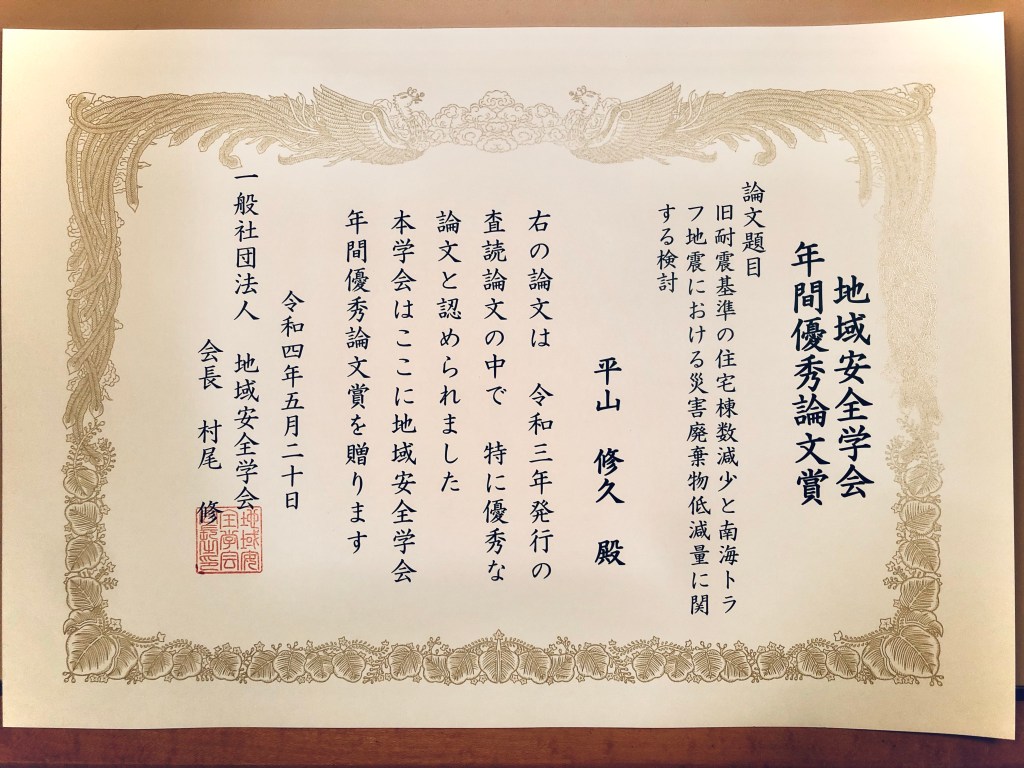 地域安全学会
年間優秀論文賞
論文題目
旧耐震基準の住宅棟数減少と南海トラ
フ地震における災害廃棄物低減量に関
する検討
平山 修久 殿
右の論文は 令和三年発行の
査読論文の中で 特に優秀な
論文と認められました
本学会はここに地域安全学会
年間優秀論文賞を贈ります
令和四年五月二十日
一般社団法人 地域安全学会
会長 村尾 修
地域安
全学会